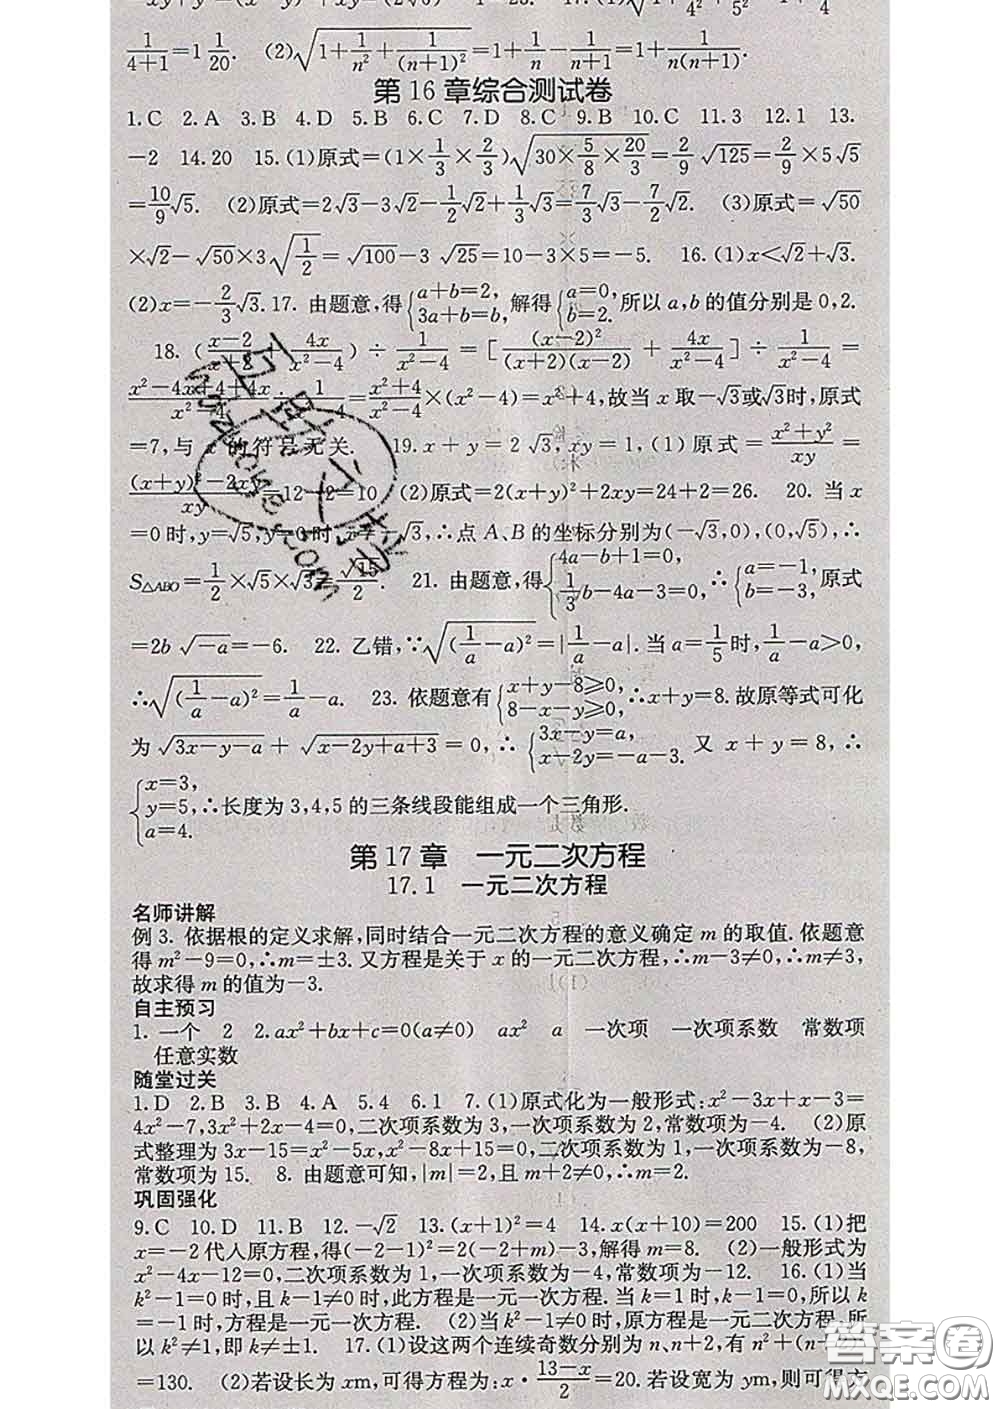 1/(4+1)=1 1/20. (2)√(1+1/n²+1/(n+1)²)=1+1/n-1/(n+1)=1+1/(n(n+1)).
第16章综合测试卷
1.C 2.A 3.B 4.D 5.B 6.C 7.D 8.C 9.B 10.C 11.3 12.1 13.
-2 14.20 15.(1)原式=(1×1/3×2/3)√(30×5/8×20/3)=2/9√125=2/9×5√5
=10/9√5. (2)原式=2√3-3√2-1/2√2+1/3√3=7/3√3-7/2√2. (3)原式=√50
×√2-√50×3√(1/2)=√100-3√25=10-3×5=-5. 16.(1)x<√2+√3.
(2)x=-2/3√3. 17. 由题意,得{a+b=2, 3a+b=b, 解得{a=0, b=2. 所以a,b的值分别是0,2.
18. ((x-2)/(x+2)+4x/(x²-4))÷1/(x²-4)=[(x-2)²/((x+2)(x-2))+4x/(x²-4)]÷1/(x²-4)=
(x²-4x+4+4x)/(x²-4)÷1/(x²-4)=(x²+4)/(x²-4)×(x²-4)=x²+4,故当x取-√3或√3时,原式
=7,与x的符号无关. 19. x+y=2√3,xy=1,(1)原式=(x²+y²)/xy=
((x+y)²-2xy)/xy=12-2=10 (2)原式=2(x+y)²+2xy=24+2=26. 20. 当x
=0时,y=√5,y=0时,x=-√3,∴点A、B的坐标分别为(-√3,0),(0,√5),∴
S△ABO=1/2×√5×√3=√15/2. 21. 由题意,得{4a-b+1=0, 1/3b-4a-3=0, ∴{a=-1, b=-3, 原式
=2b√-a=-6. 22. 乙错,∵√((1/a-a)²)=|1/a-a|. 当a=1/5时,1/a-a>0,
∴√((1/a-a)²)=1/a-a. 23. 依题意有{x+y-8≥0, 8-x-y≥0, ∴x+y=8.故原等式可化
为√(3x-y-a)+√(x-2y+a+3)=0,∴{3x-y=a, x-2y=a-3. 又x+y=8,∴
{x=3, y=5, a=4. ∴长度为3,4,5的三条线段能组成一个三角形.
第17章 一元二次方程
17.1 一元二次方程
名师讲解
例3. 依据根的定义求解,同时结合一元二次方程的意义确定m的取值.依题意
得m²-9=0,∴m=±3.又方程是关于x的一元二次方程,∴m-3≠0,∴m≠3,
故求得m的值为-3.
自主预习
1. 一个 2 2.ax²+bx+c=0(a≠0) ax² a 一次项 一次项系数 常数项
任意实数
随堂过关
1.D 2.B 3.B 4.A 5.4 6.1 7.(1)原式化为一般形式:x²-3x+x-3=
4x²-7,3x²+2x-4=0,二次项系数为3,一次项系数为2,常数项为-4. (2)原
式整理为3x-15=x²-5x,x²-8x+15=0,二次项系数为1,一次项系数为-8,
常数项为15. 8. 由题意可知,|m|=2,且m+2≠0,∴m=2.
巩固强化
9.C 10.D 11.B 12.-√2 13.(x+1)²=4 14.x(x+10)=200 15.(1)把
x=-2代人原方程,得(-2-1)²=2(-2+m)-3,解得m=8. (2)一般形式为
x²-4x-12=0,二次项系数为1,一次项系数为-4,常数项为-12. 16.(1)当
k²-1=0时,且k-1≠0时,此方程是一元一次方程.当k=1时,k-1=0,所以k=-1
时,方程是一元一次方程. (2)当k²-1≠0时,原方程是一元二次方程.所
以k²≠1,即k≠±1. 17.(1)设这两个连续奇数分别为n、n+2,有n²+(n+2)²
=130. (2)若设长为xm,可得方程为:x·(13-x)/2=20.若设宽为ym,则可得方
答案圈
MXQE.COM